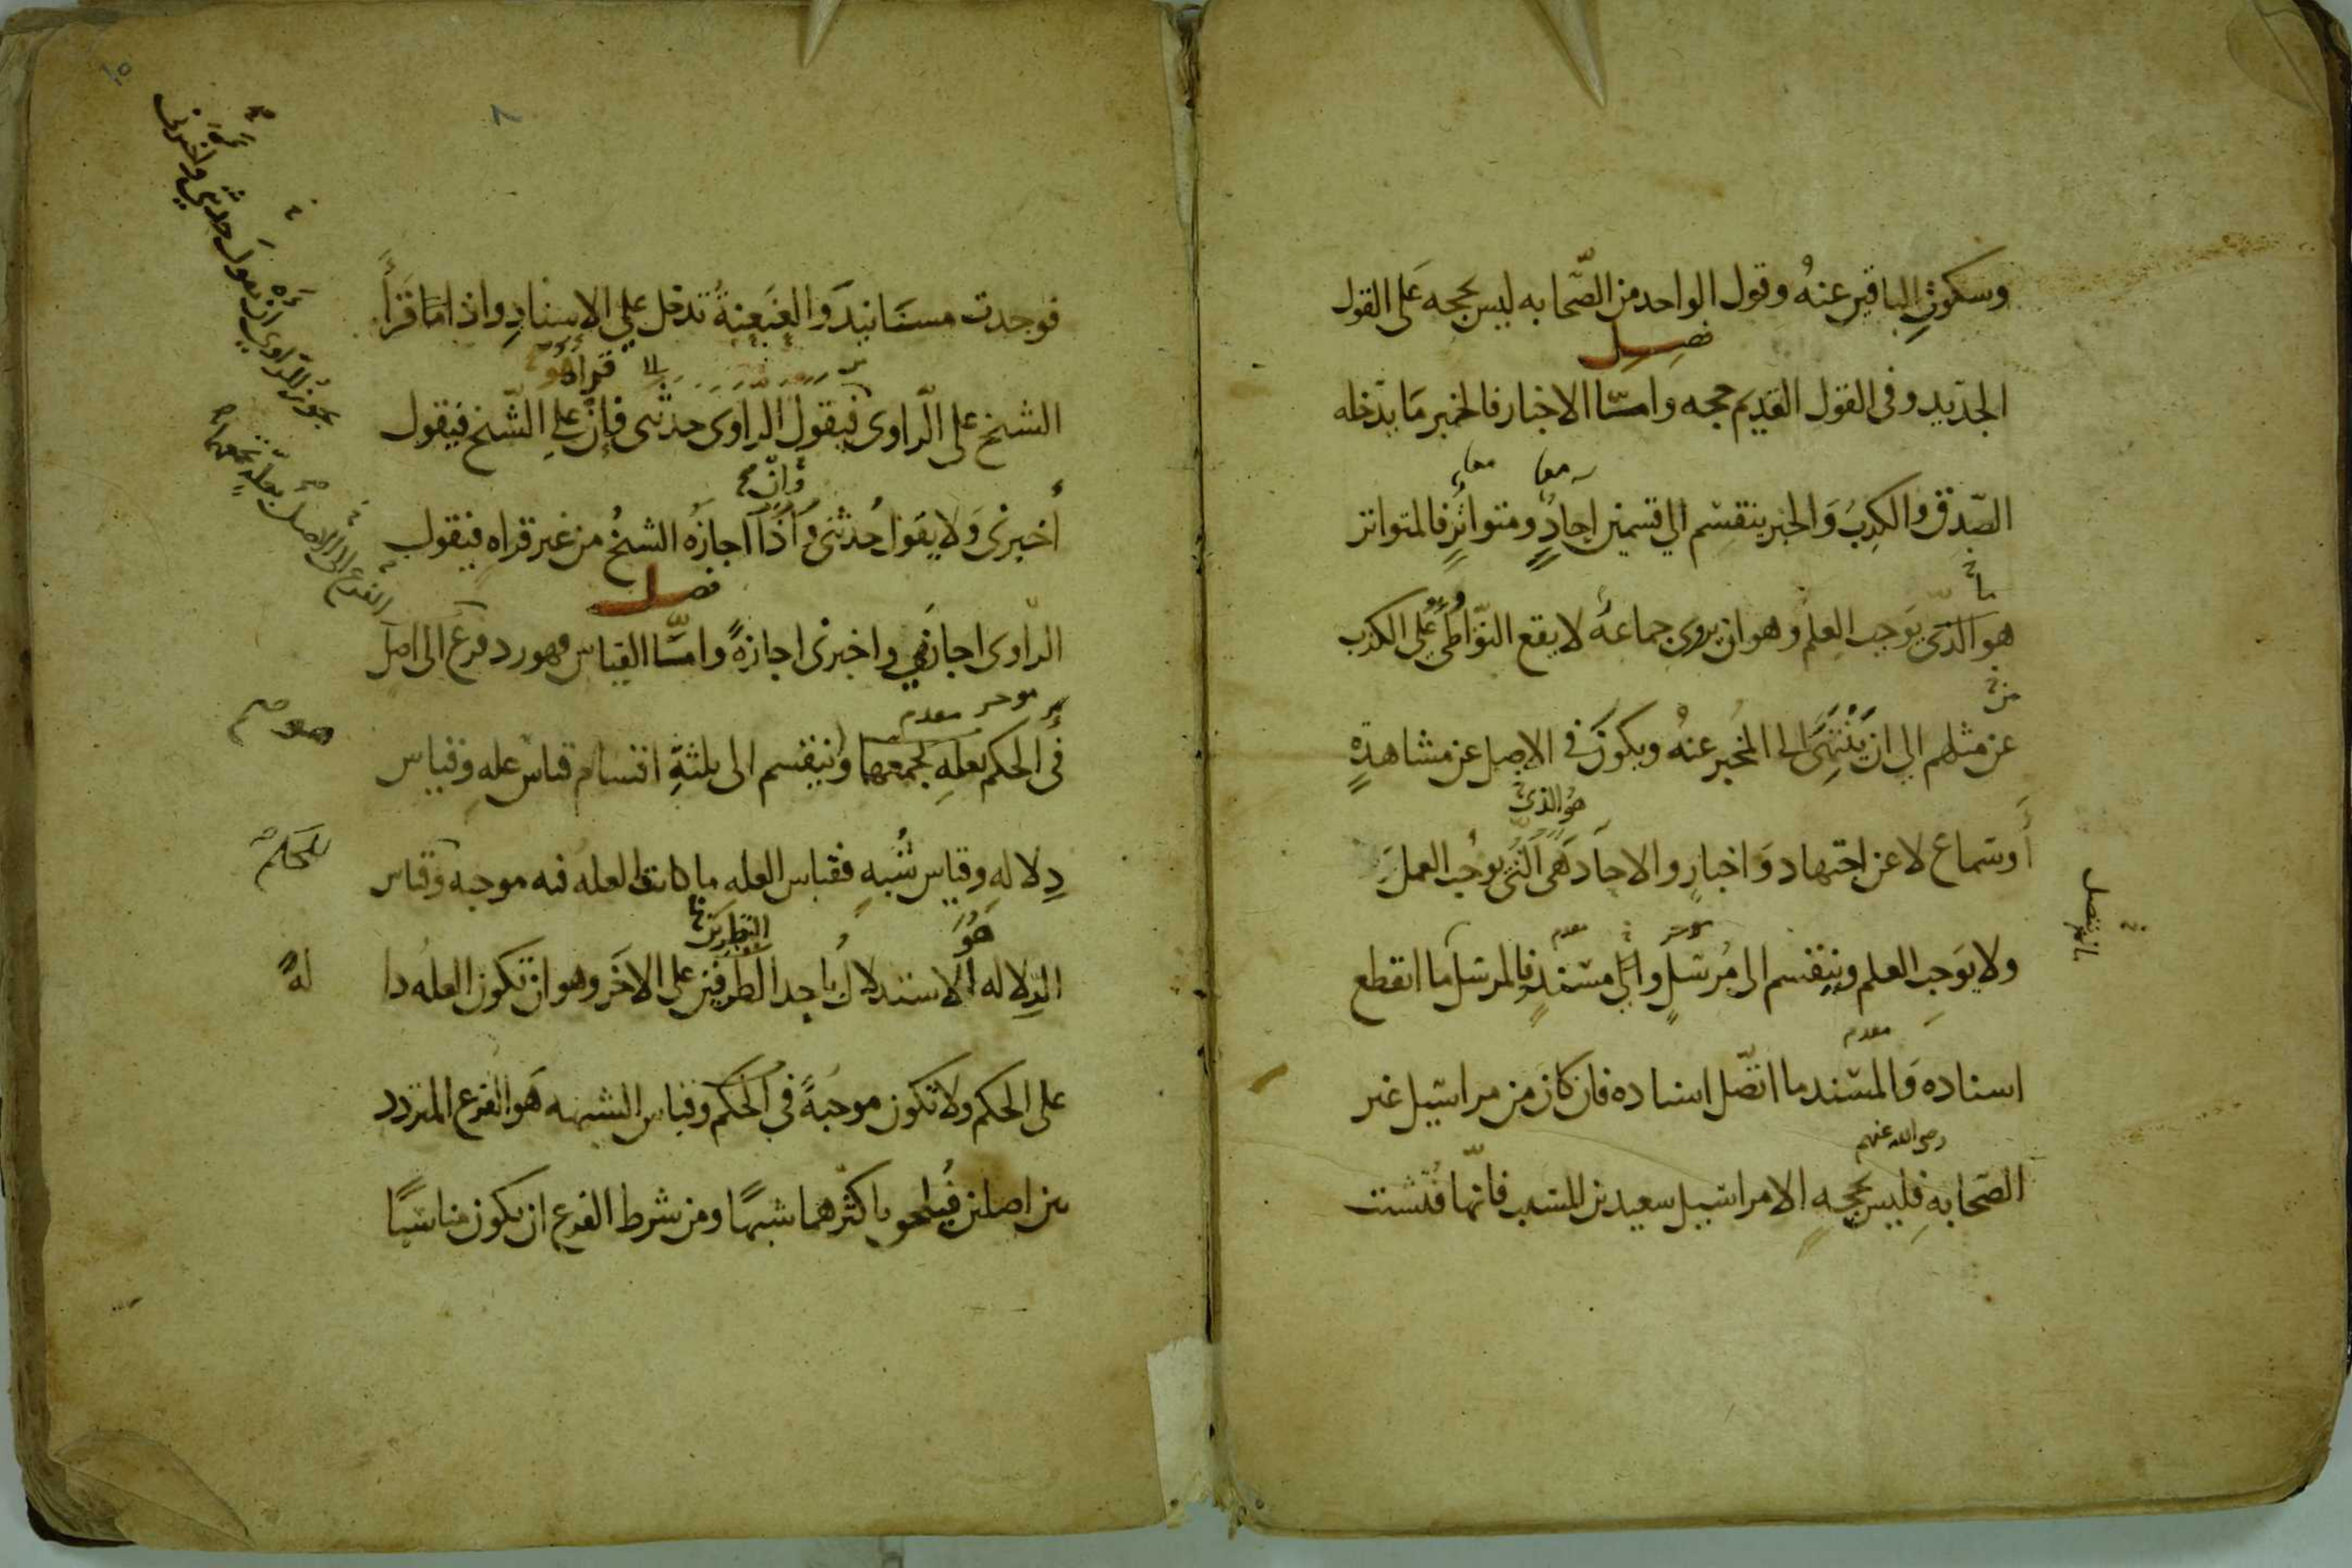 وسكوتِ الباقين عنهُ وقول الواحد من الصّحابه ليس بحجه عَلى القول
فصل
الجديد وفى القول القديم حجه وامّا الاخبار فالخبر مَا يدخله
معا معا
الصّدق والكذبَ وَالخبر ينقسم الي قسمين احادٍ ومتواترٍ فالمتواتر
ما
هو الذى يوَجب العلم وهو ان يروى جماعهٌ لا يقع التّواطئُ على الكذب
من
عن مثلهم الي ان يَنْتهِىَ الى المخبر عنهُ ويكونَ في الاصل عن مشاهدةٍ
هُو الذى
أوسماع لا عن اجتهاد وَاخبار والاحاد هَى الّتى يوجُب العمل
موخر مقدم
ولا يوَجِب العلم وينقسم الى مُرسَلٍ والي مسندٍ فالمرسل ما انقطع
مقدم
اسناده وَالمسند ما اتصّل اسناده فان كان من مراسيل غير
رضى الله عنهم
الصّحابهِ فليس بحجهٍ الا مراسيل سعيد بن المسيب فانّها فُتّشت
فوجدت مسَانيدَ وَالعَنعنةُ تدخل علي الاسنادِ واذا مَا قَرَأَ
قراهُو
الشيخ على الّراوى فيقول الراوىَ حدثنى فإن علي الشّيخ فيَقول
وَان
أخبرنى وَلا يقَول حُدثنى وَاذَا اجازَهُ الشيخُ من غير قراهٍ فيقول
فصل
الرّاوى اجازني واخبرنى اجازةً وامّا القياس فهو رد فرع الى اصل
موخر مقدم
فى الحكم بعلهٍ تجمعهما وينقسم الى ثلثةِ اقسام قياس عله وقياس
دِلالهٍ وقياس شبُهٍ فقياس العله ما كانت العله فيه موجبه وقياس
هُوَ النظرين
الدِّلاله الاستدلالُ باحد الطرفين على الاخَر وهو ان تكون العله دا
لهً
على الحكم ولا تكون موجبةً في الحكم وقياس الشبه هَو الفرع المتردد
بين اصلين فيُلحق باكثرهما شبهًا ومن شرط الفرع ان يكون مناسبًا
يجوز للراوى ان يقول حدثنى واخبرنى
الفرع الى الاصل بعلّةٍ تجمعهما
للحكم